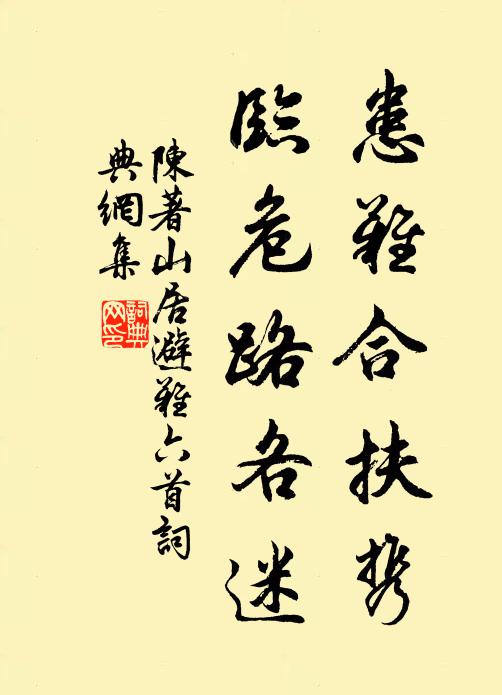 患難合扶携
臨危路各迷
陳著山居避難六首詞
典網集
詞典網印